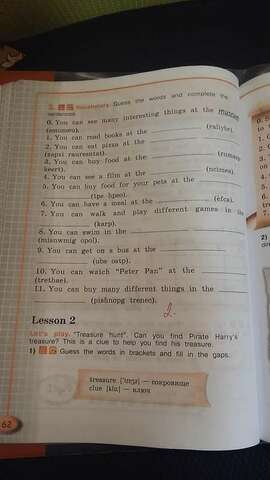 Vocabulary. Guess the words and complete the
sentences.
0. You can see many interesting things at the museum
(emumsu).
1. You can read books at the ________ (raliybr).
2. You can eat pizza at the ________
(zapsi rauresntat).
3. You can buy food at the ________ (rumasp-
keert).
4. You can see a film at the ________ (ncimea).
5. You can buy food for your pets at the ________
________ (tpe hpso).
6. You can have a meal at the ________ (éfca).
7. You can walk and play different games in the
________ (karp).
8. You can swim in the ________
(misowmig opol).
9. You can get on a bus at the ________
________ (ubs ostp).
10. You can watch "Peter Pan" at the ________
(trethae).
11. You can buy many different things in the ________
________ (pishnopg trenec).
Lesson 2
Let's play. "Treasure hunt". Can you find Pirate Harry's
treasure? This is a clue to help you find his treasure.
1) Guess the words in brackets and fill in the gaps.
treasure ['treʒə] — сокровище
clue [kluː] — ключ
62